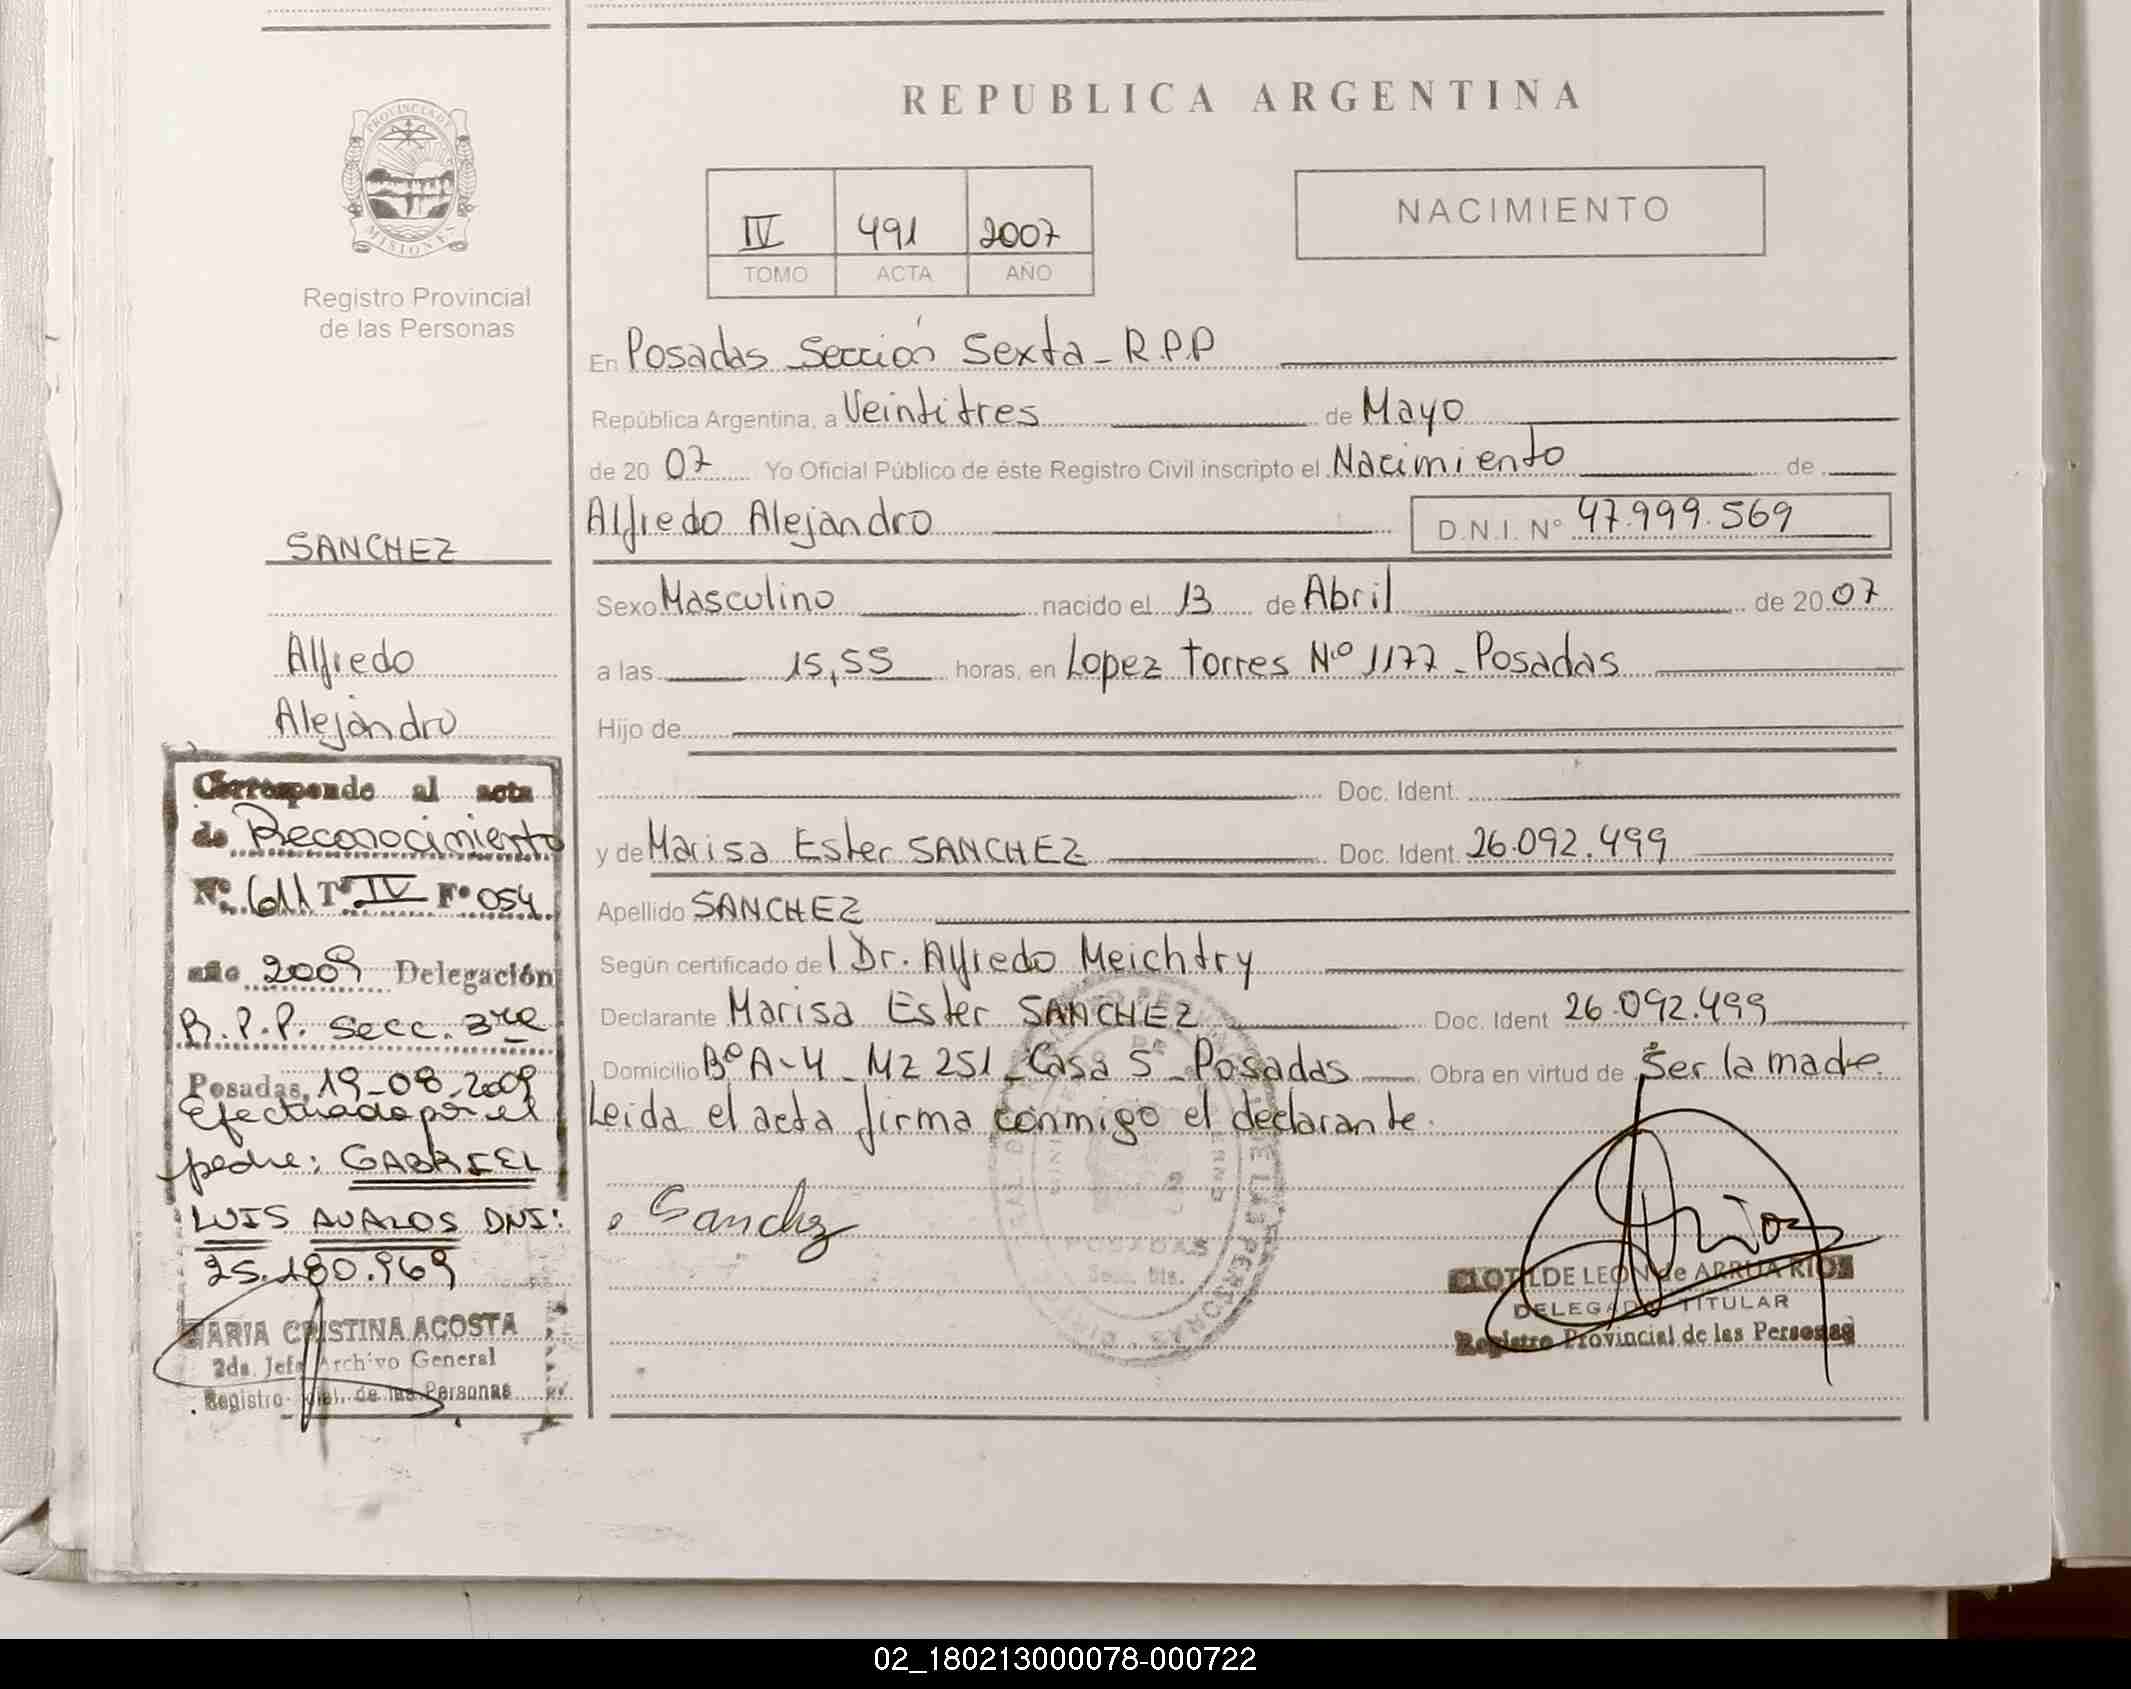 REPUBLICA ARGENTINA
PROVINCIA DE
MISIONES
Registro Provincial
de las Personas
IV 491 2007
TOMO ACTA AÑO
NACIMIENTO
En Posadas Sección Sexta - R.P.P
República Argentina, a Veintitres de Mayo
de 20 07 Yo Oficial Público de éste Registro Civil inscripto el Nacimiento de
Alfredo Alejandro D.N.I. Nº 47.999.569
Sexo Masculino nacido el 13 de Abril de 20 07
a las 15,55 horas, en Lopez Torres Nº 1177 - Posadas
Hijo de
Doc. Ident.
y de Marisa Ester SANCHEZ Doc. Ident. 26.092.499
Apellido SANCHEZ
Según certificado del Dr. Alfredo Meichtry
Declarante Marisa Ester SANCHEZ Doc. Ident 26.092.499
Domicilio Bº A-4 - Mz 251 - Casa 5 - Posadas Obra en virtud de Ser la madre.
Leida el acta firma conmigo el declarante.
Sanchz
POSADAS
CLOTILDE LEON de ARRUA RIOS
DELEGADA TITULAR
Registro Provincial de las Personas
SANCHEZ
Alfredo
Alejandro
Corresponde al acta
de Reconocimiento
Nº. 611 Tº IV Fº 054
año 2009 Delegación
R.P.P. Secc. 3ra
Posadas, 19-08-2009
Efectuado por el
padre: GABRIEL
LUIS AVALOS DNI:
25.180.969
MARIA CRISTINA ACOSTA
2da. Jefe Archivo General
Registro de las Personas
02_180213000078-000722